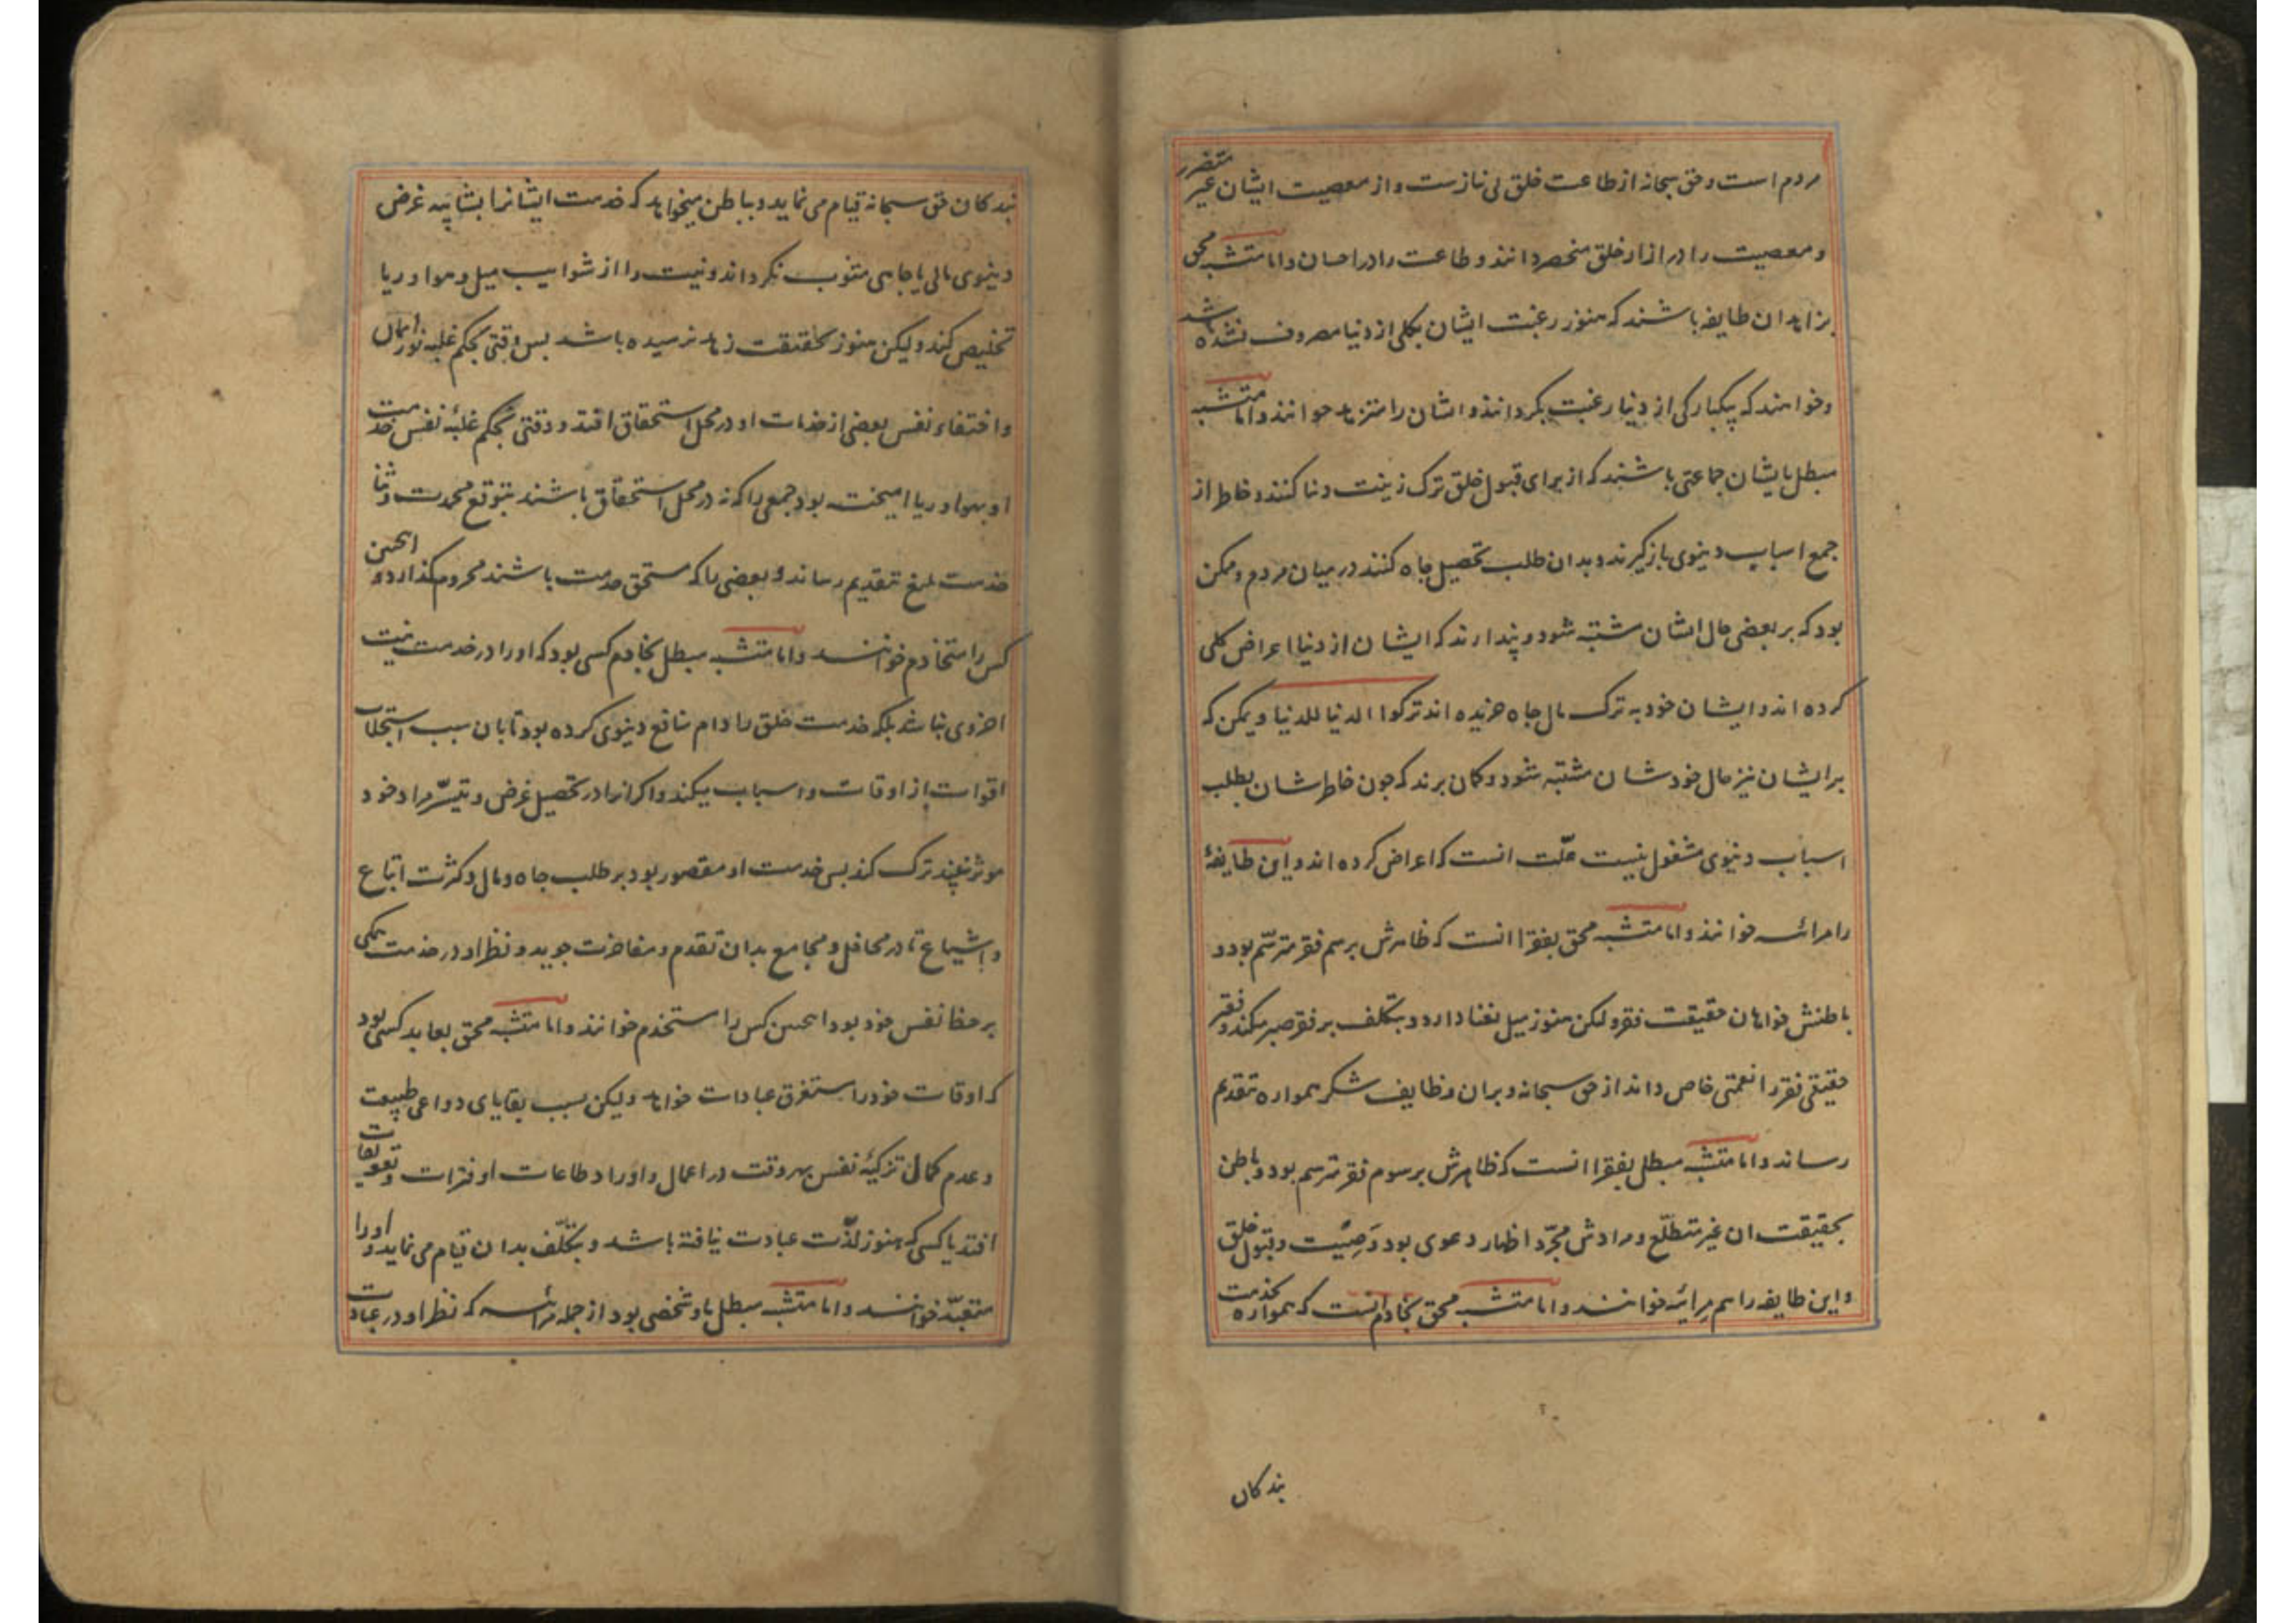 مردم است و حق سبحانه از طاعت خلق بی نیازست و از معصیت ایشان غیر متضرر
و معصیت را در ازار خلق منحصر دانند و طاعت را در احسان واما متشبه محق
بزاهدان طایفه باشند که هنوز رغبت ایشان بکلی از دنیا مصروف نشده باشد
و خواهند که یکبارگی از دنیا رغبت بگردانند و ایشان را متزهد خوانند واما متشبه
مبطل بایشان جماعتی باشند که از برای قبول خلق ترک زینت دنیا کنند و خاطر از
جمع اسباب دنیوی بازگیرند و بدان طلب تحصیل جاه کنند در میان مردم و ممکن
بود که بر بعضی حال ایشان مشتبه شود و پندارند که ایشان از دنیا اعراض کلی
کرده اند و ایشان خود به ترک مال جاه خریده اند ترکوا الدنیا للدنیا و یمکن که
بر ایشان نیز حال خودشان مشتبه شود و کمان برند که جون خاطرشان بطلب
اسباب دنیوی مشغول نیست علت انست که اعراض کرده اند و این طایفهٔ
را مرائیه خوانند واما متشبه محق بفقرا انست که ظاهرش برسم فقر مترسم بود و
باطنش خواهان حقیقت فقر و لکن هنوز میل بغنا دارد و بتکلف بر فقر صبر میکند و فقر
حقیقی فقر را نعمتی خاص داند از حق سبحانه و بران وظایف شکر همواره تقدیم
رساند واما متشبه مبطل بفقرا انست که ظاهرش برسوم فقر مترسم بود و باطن
بحقیقت ان غیر متطلع و مرادش مجرد اظهار دعوی بود و صیت و قبول خلق
و این طایفه را هم مرائیه خوانند واما متشبه محق بخادم انست که همواره بخدمت
بندکان
بندکان حق سبحانه قیام می نماید و بباطن میخواهد که خدمت ایشانرا بشایبه غرض
دنیوی مالی یا جاهی مشوب نکرداند و نیت را از شوایب میل و هوا و ریا
تخلیص کند و لیکن هنوز بحقیقت زهد نرسیده باشد بس وقتی بحکم غلبه نور ایمان
و اختفاء نفس بعضی از خدمات او در محل استحقاق افتد و وقتی بحکم غلبهٔ نفس خدمت
او بهوا و ریا امیخته بود جمعی را که نه در محل استحقاق باشند بتوقع محمدت و ثنا
خدمت بلیغ بتقدیم رساند و بعضی را که مستحق خدمت باشند محروم گذارد و اینچنین
کس را متخادم خوانند واما متشبه مبطل بخادم کسی بود که او را در خدمت نیت
اخروی نباشد بلکه خدمت خلق را دام منافع دنیوی کرده بود تا بان سبب استجلاب
اقوات از اوقات و اسباب میکند و اکر انرا در تحصیل غرض و تیسر مراد خود
موثر نبیند ترک کند بس خدمت او مقصور بود بر طلب جاه و مال و کثرت اتباع
و اشیاع تا در محافل و مجامع بدان تقدم و مفاخرت جوید و نظر او در خدمت همکی
بر حظ نفس خود بود اینچنین کس را مستخدم خوانند واما متشبه محق بعابد کسی بود
که اوقات خود را مستغرق عبادات خواهد ولیکن بسبب بقایای دواعی طبیعت
و عدم کمال تزکیهٔ نفس بهر وقت در اعمال و اوراد و طاعات او فترات و تعویقات
افتد یا کسی که هنوز لذت عبادت نیافته باشد و بتکلف بدان قیام می نماید و او را
متعبد خوانند واما متشبه مبطل باو شخصی بود از جمله مرائیه که نظر او در عبادت